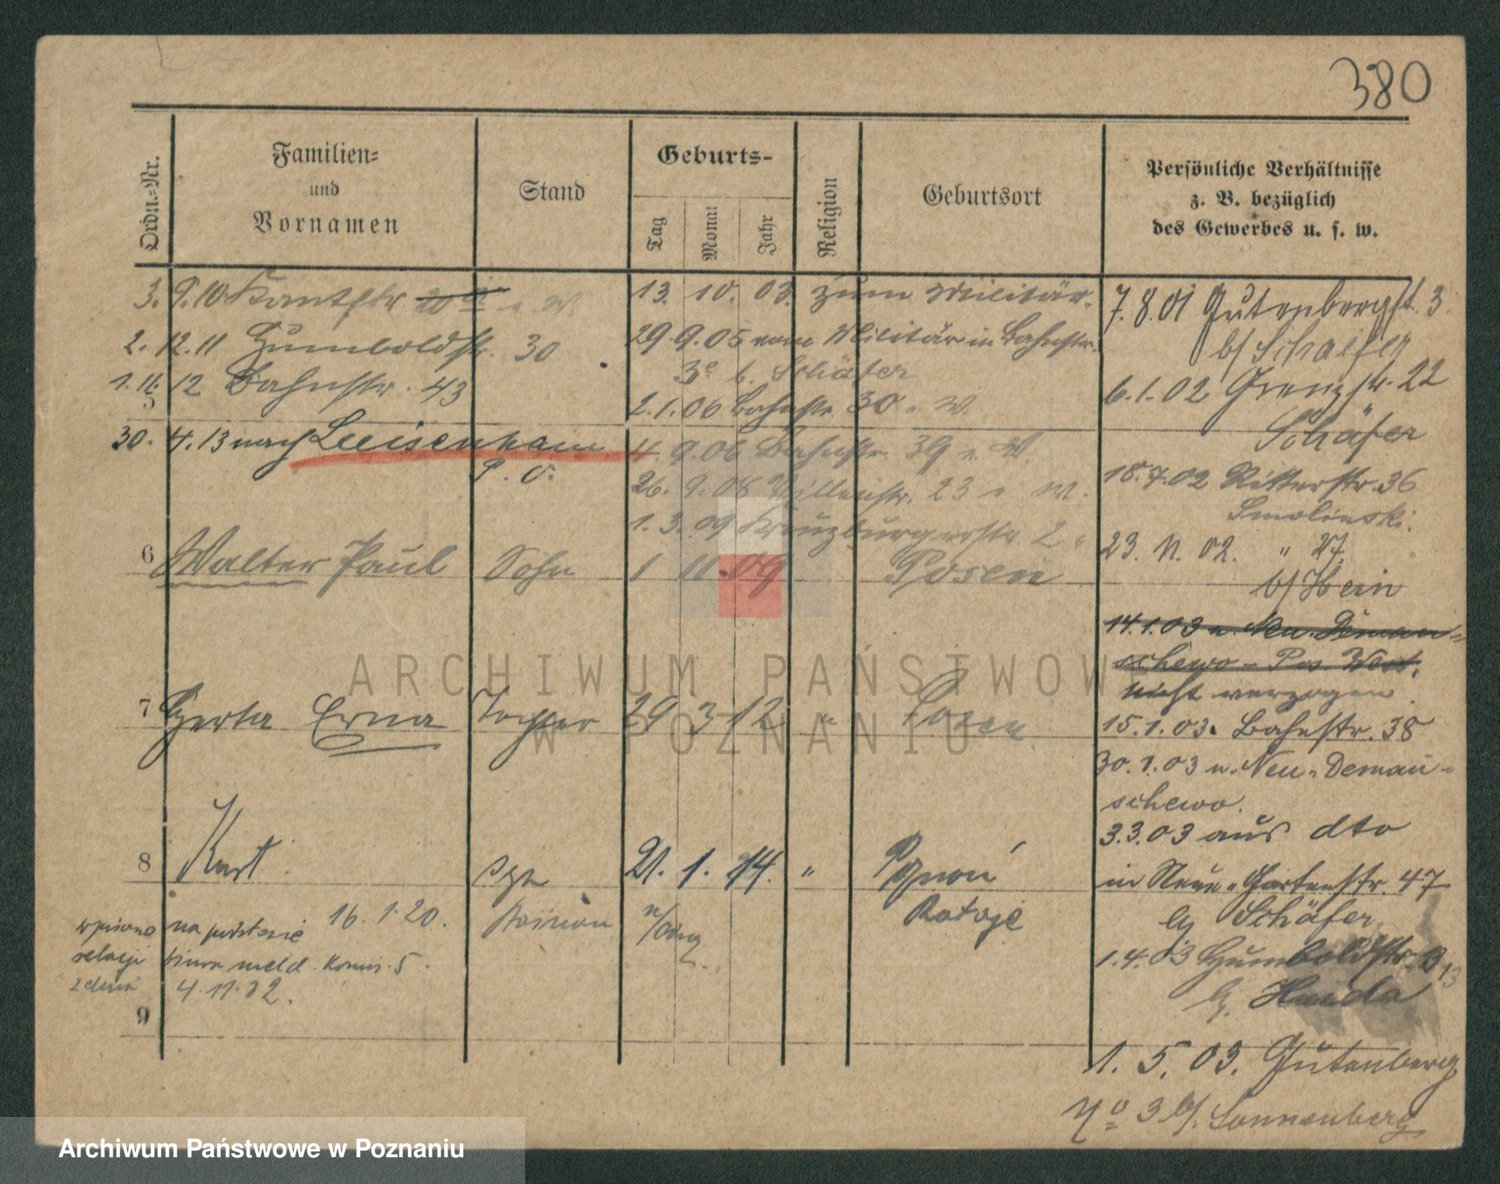 380
Ordn.-Nr.
Familien-
und
Vornamen
Stand
Geburts-
Tag
Monat
Jahr
Religion
Geburtsort
Persönliche Verhältnisse
z. B. bezüglich
des Gewerbes u. s. w.
3. 9. 10 Kantstr
2. 12. 11 Humboldstr. 30
1. 11. 12 Bahnstr. 43
5
30. 4. 13 nach Luisenhain
P. O.
13. 10. 03. zum Militär.
29. 9. 05 vom Militär in Bahnstr.
b. Schäfer
2. 1. 06 Bahnstr. 30 v. W.
4. 9. 06 Bahnstr. 39 v. W.
26. 9. 08 Villenstr. 23 v. W.
1. 3. 09 Kreuzburgerstr. 2
6 Walter Paul Sohn 1 11. 09 Posen
7 Gerta Erna Tochter 29 3 12 " Posen
8 Kurt syn 21. 1. 14. " Poznań
Rataje
wpisano na podstawie 16. 1. 20.
relacji biura meld. Komis. 5.
z dnia 4. 11. 32.
9
7. 8. 01 Gutenbergst. 3
b/ Schaefer
6. 1. 02 Grenzstr. 22
Schäfer
18. 7. 02 Ritterstr. 36
Smolinski.
23. 11. 02. " 27.
b/ Hein
14. 1. 03 n. Neu. Deman-
schewo - Pos. West.
nicht verzogen
15. 1. 03. Bahnstr. 38
30. 1. 03 n. Neu-Deman-
schewo.
3. 3. 03 aus dto
in Neue-Gartenstr. 47
bj Schäfer
1. 4. 03 Humboldstr. 13
bj. Hunda
1. 5. 03. Gutenberg
No 3 b/. Sonnenberg
ARCHIWUM PAŃSTWOWE
W POZNANIU
Archiwum Państwowe w Poznaniu